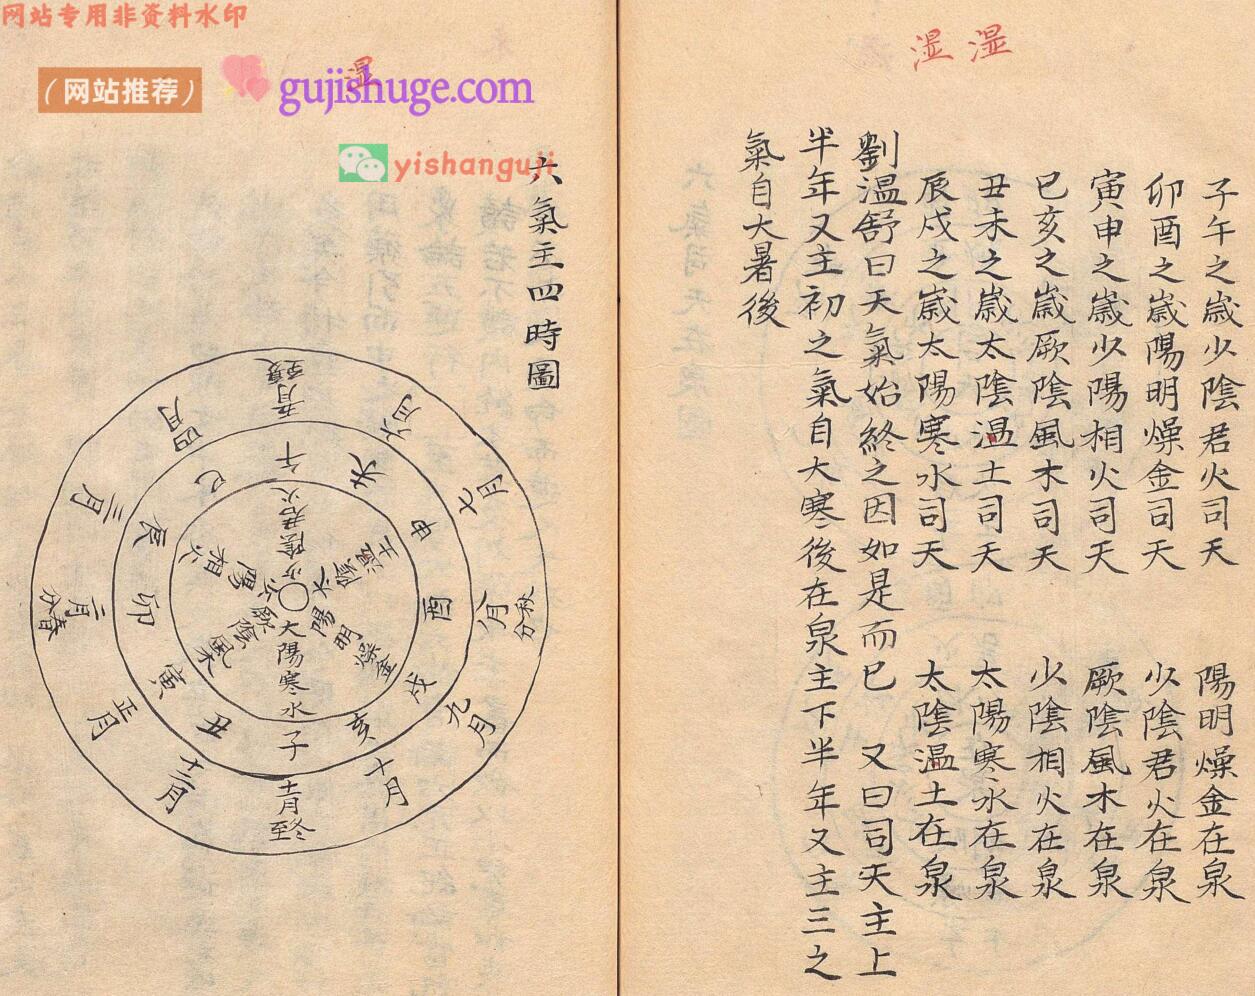 网站专用非资料水印
（网站推荐）
gujishuge.com
yishanguji
湿
湿
湿
子午之歲少陰君火司天 陽明燥金在泉
卯酉之歲陽明燥金司天 少陰君火在泉
寅申之歲少陽相火司天 厥陰風木在泉
巳亥之歲厥陰風木司天 少陰相火在泉
丑未之歲太陰温土司天 太陽寒水在泉
辰戌之歲太陽寒水司天 太陰温土在泉
劉温舒曰天氣始終之因如是而已 又曰司天主上
半年又主初之氣自大寒後在泉主下半年又主三之
氣自大暑後
六氣主四時圖
五月夏至
六月
七月
八月秋分
九月
十月
十一月冬至
十二月
正月
二月春分
三月
四月
午
未
申
酉
戌
亥
子
丑
寅
卯
辰
巳
少陰君火
太陰濕土
陽明燥金
大陽寒水
厥陰風木
少陽相火